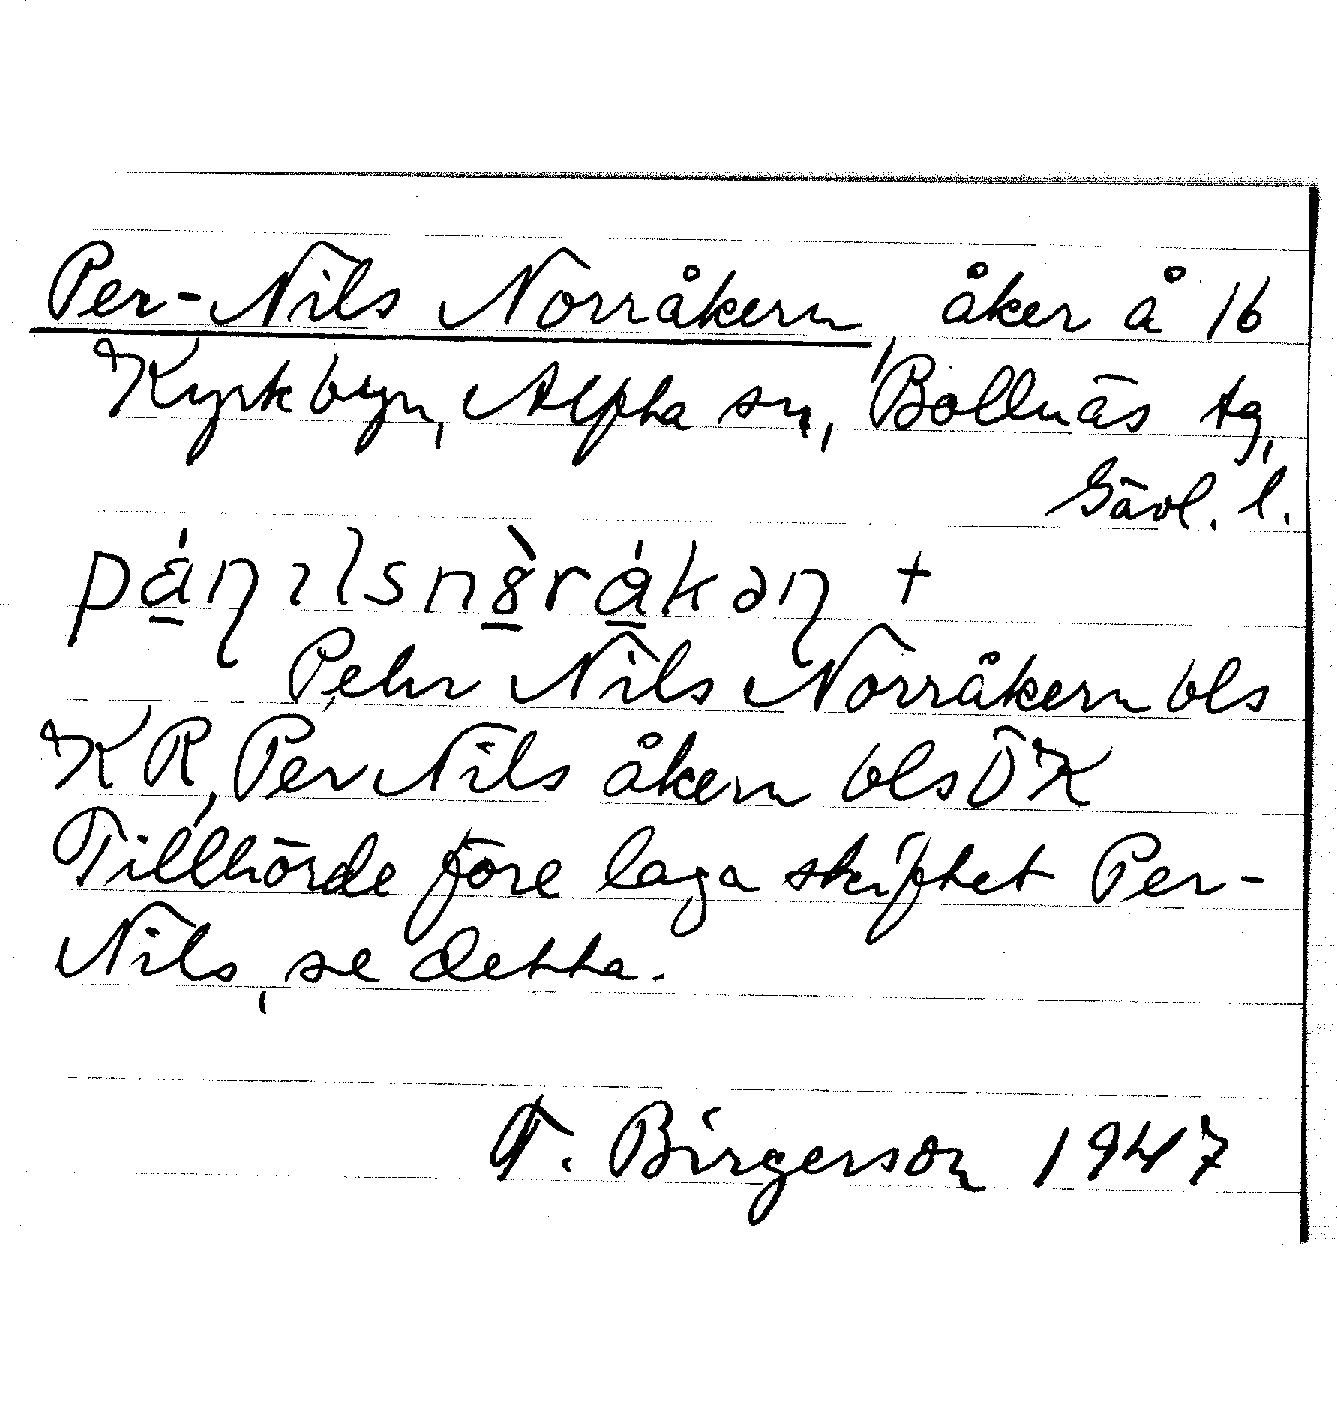 Per-Nils Norråkern, åker å 16
Kyrkbyn, Alfta sn, Bollnäs tg,
Gävl. l.
+
Pehr Nils Norråkern bls
KR, Per Nils åkern bls ÖK
Tillhörde före laga skiftet Per-
Nils, se detta.
T. Birgerson 1947